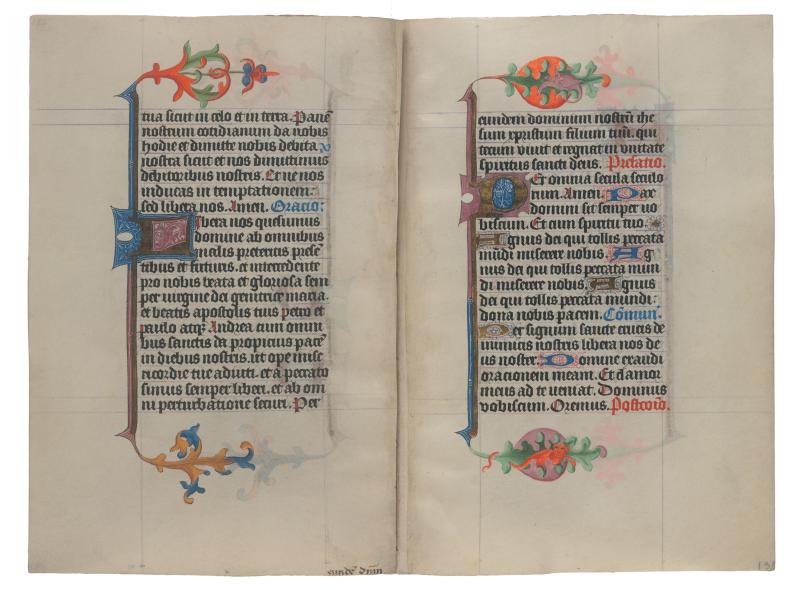 tua sicut in celo et in terra. Pane͂
nostrum cotidianum da nobis
hodie et dimitte nobis debita
nostra sicut et nos dimittimus
debitoribus nostris. Et ne nos
inducas in temptationem:
sed libera nos. Amen. Oracio:
Libera nos quesumus
domine ab omnibus
malis preteritis prese͂
tibus et futuris. et intercedente
pro nobis beata et gloriosa sem
per uirgine dei genitrice maria.
et beatis apostolis tuis petro et
paulo atq; Andrea cum omni
bus sanctis da propicius pace͂
in diebus nostris. ut ope mise
ricordie tue adiuti. et a peccato
simus semper liberi. et ab om
ni perturbatione securi. Per
eunde͂ dnm͂
eundem dominum nostru͂ ihe
sum xpristum filium tuu͂. qui
tecum viuit et regnat in vnitate
spiritus sancti deus. Prefatio.
Per omnia secula seculo
rum. Amen. Pax
domini sit semper uo
biscum. Et cum spiritu tuo.
Agnus dei qui tollis peccata
mu͂di miserere nobis. Ag
nus dei qui tollis peccata mun
di miserere nobis. Agnus
dei qui tollis peccata mundi:
dona nobis pacem. Co͂mun͂.
Per signum sancte crucis de
inimicis nostris libera nos de
us noster. Domine exaudi
orationem meam. Et clamor
meus ad te ueniat. Dominus
vobiscum. Oremus. Postco͂io͂.